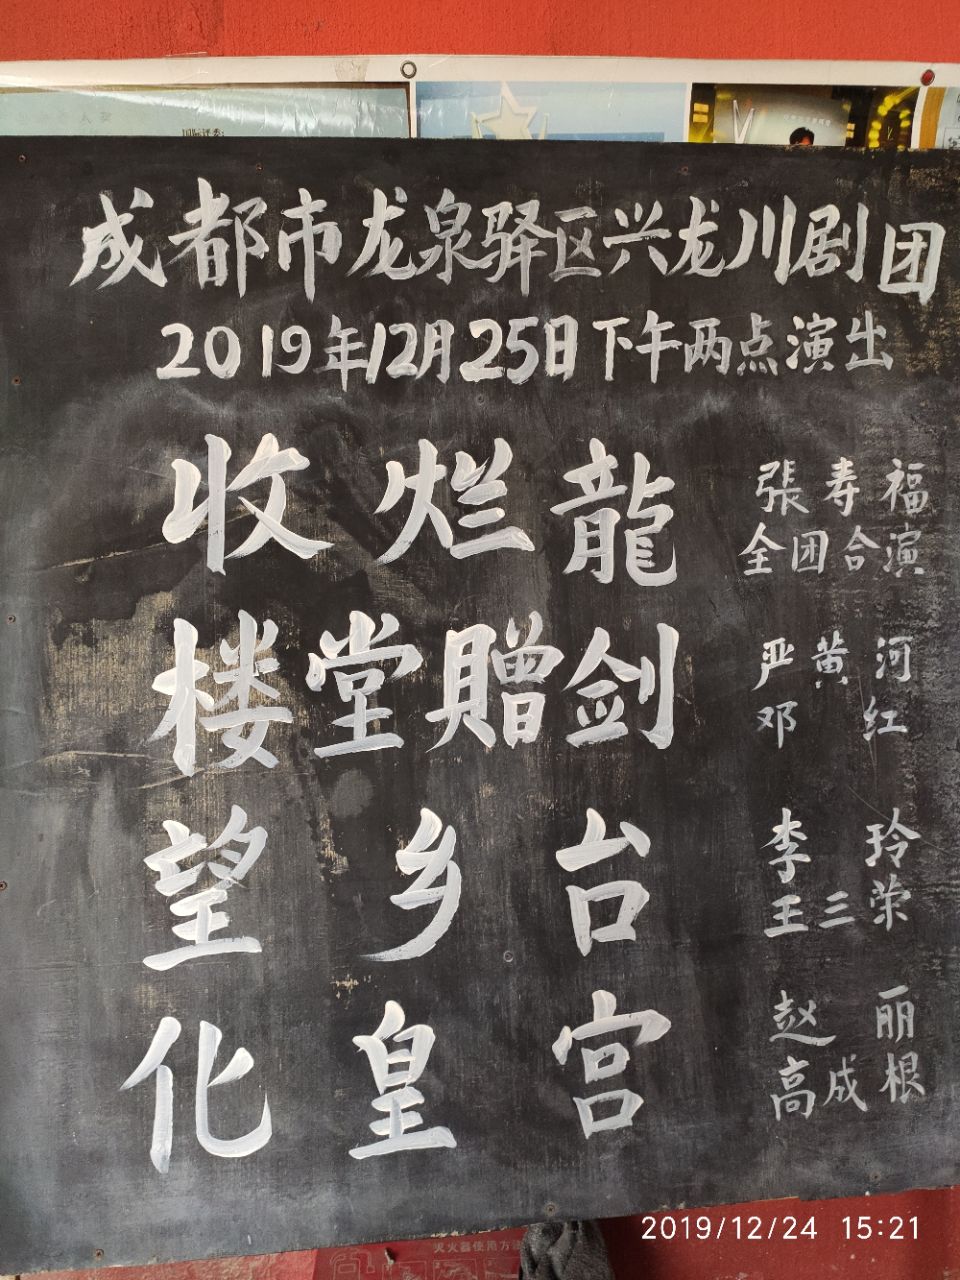 成都市龙泉驿区兴龙川剧团
2019年12月25日下午两点演出
收烂龍
張寿福
全团合演
楼堂贈剑
严黄河
邓红
望乡台
李玲
王三荣
化皇宫
赵丽
高成根
2019/12/24 15:21
灭火器使用方